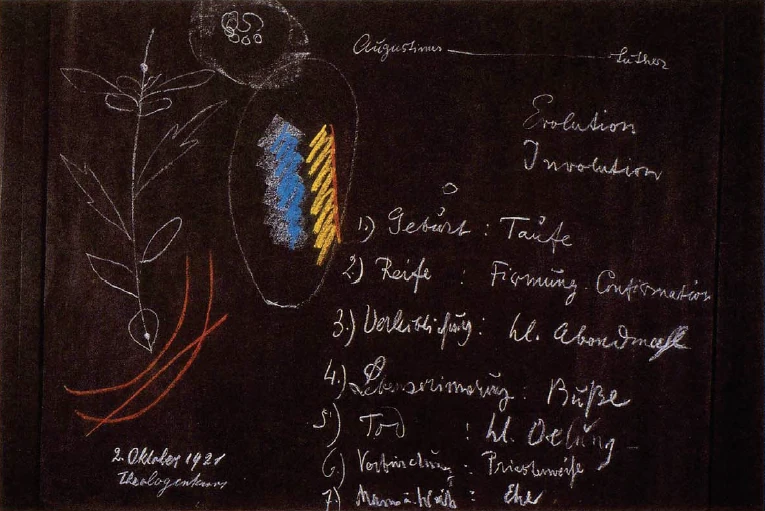 Augustinus ——— Luther
Evolution
Involution
1.) Geburt : Taufe
2) Reife : Firmung. Confirmation
3.) Verleiblichung : hl. Abendmahl
4.) Lebenserinnerung : Buße
5) Tod : hl. Oelung
6) Verbindung : Priesterweihe
7) Mann u. Weib : Ehe
2. Oktober 1921
Theologenkurs